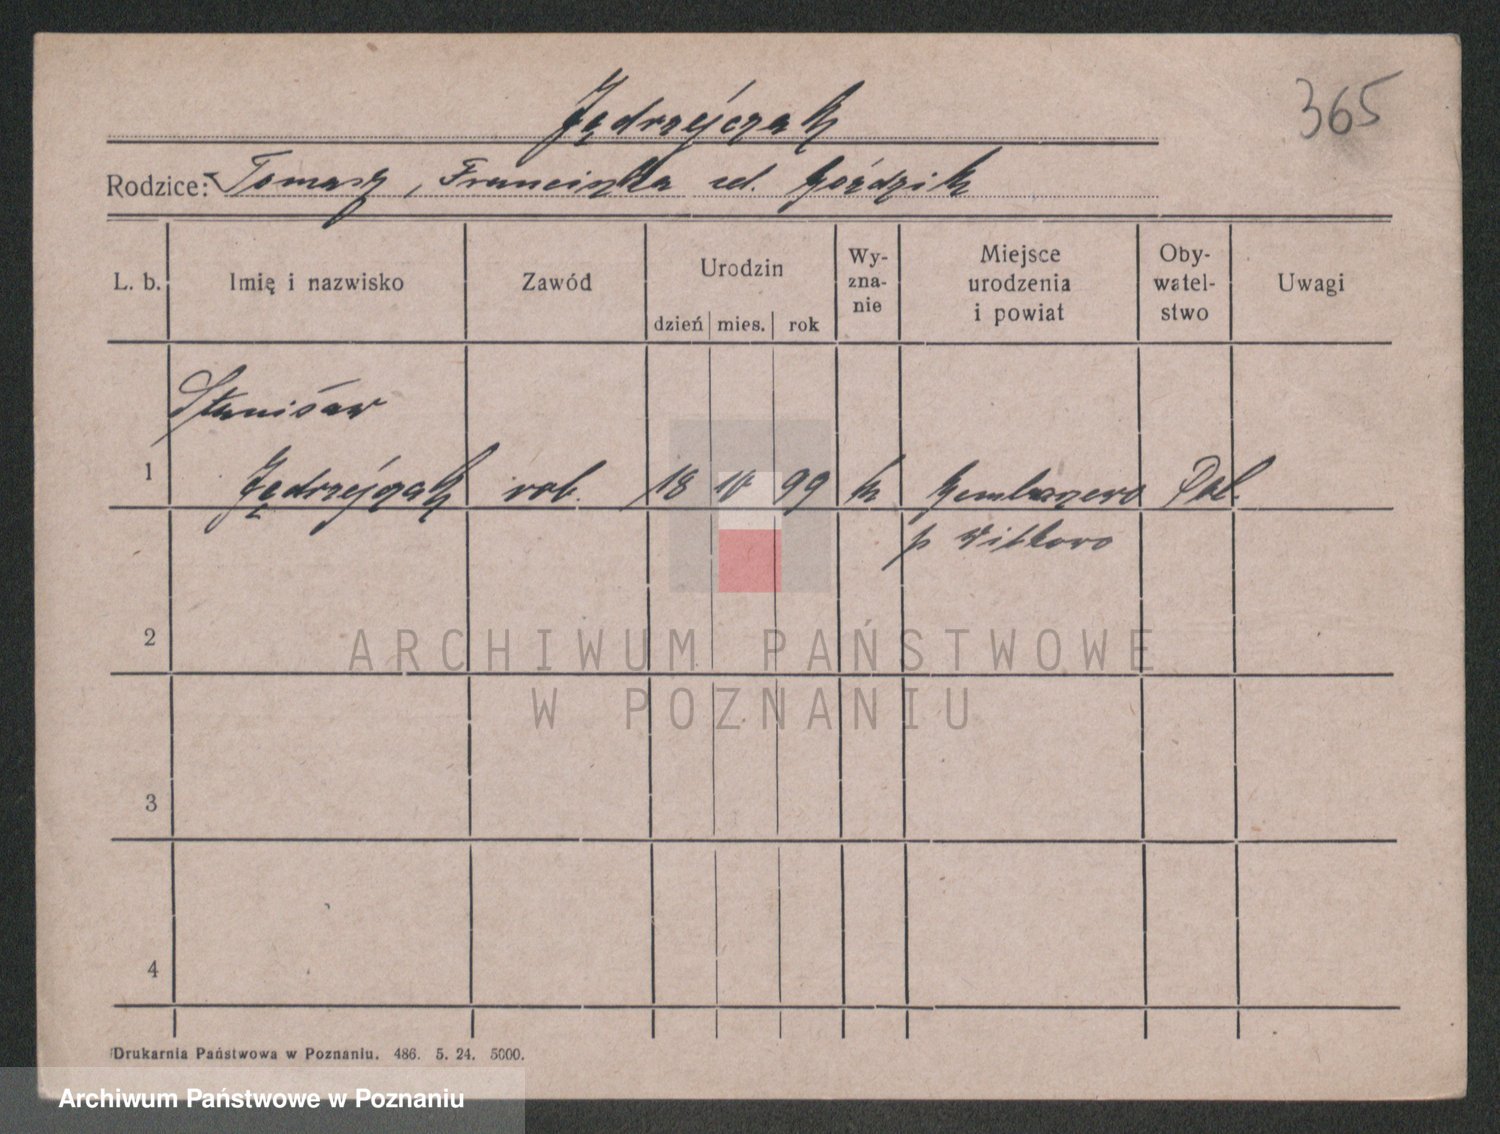 365
Jędrzejczak
Rodzice: Tomasz, Franciszka zd. Goździk
L. b. Imię i nazwisko Zawód Urodzin dzień mies. rok Wy-zna-nie Miejsce urodzenia i powiat Oby-watel-stwo Uwagi
Stanisław
1 Jędrzejczak rob. 18 10 99 k Pol.
p Witkowo
2
ARCHIWUM PAŃSTWOWE
W POZNANIU
3
4
Drukarnia Państwowa w Poznaniu. 486. 5. 24. 5000.
Archiwum Państwowe w Poznaniu